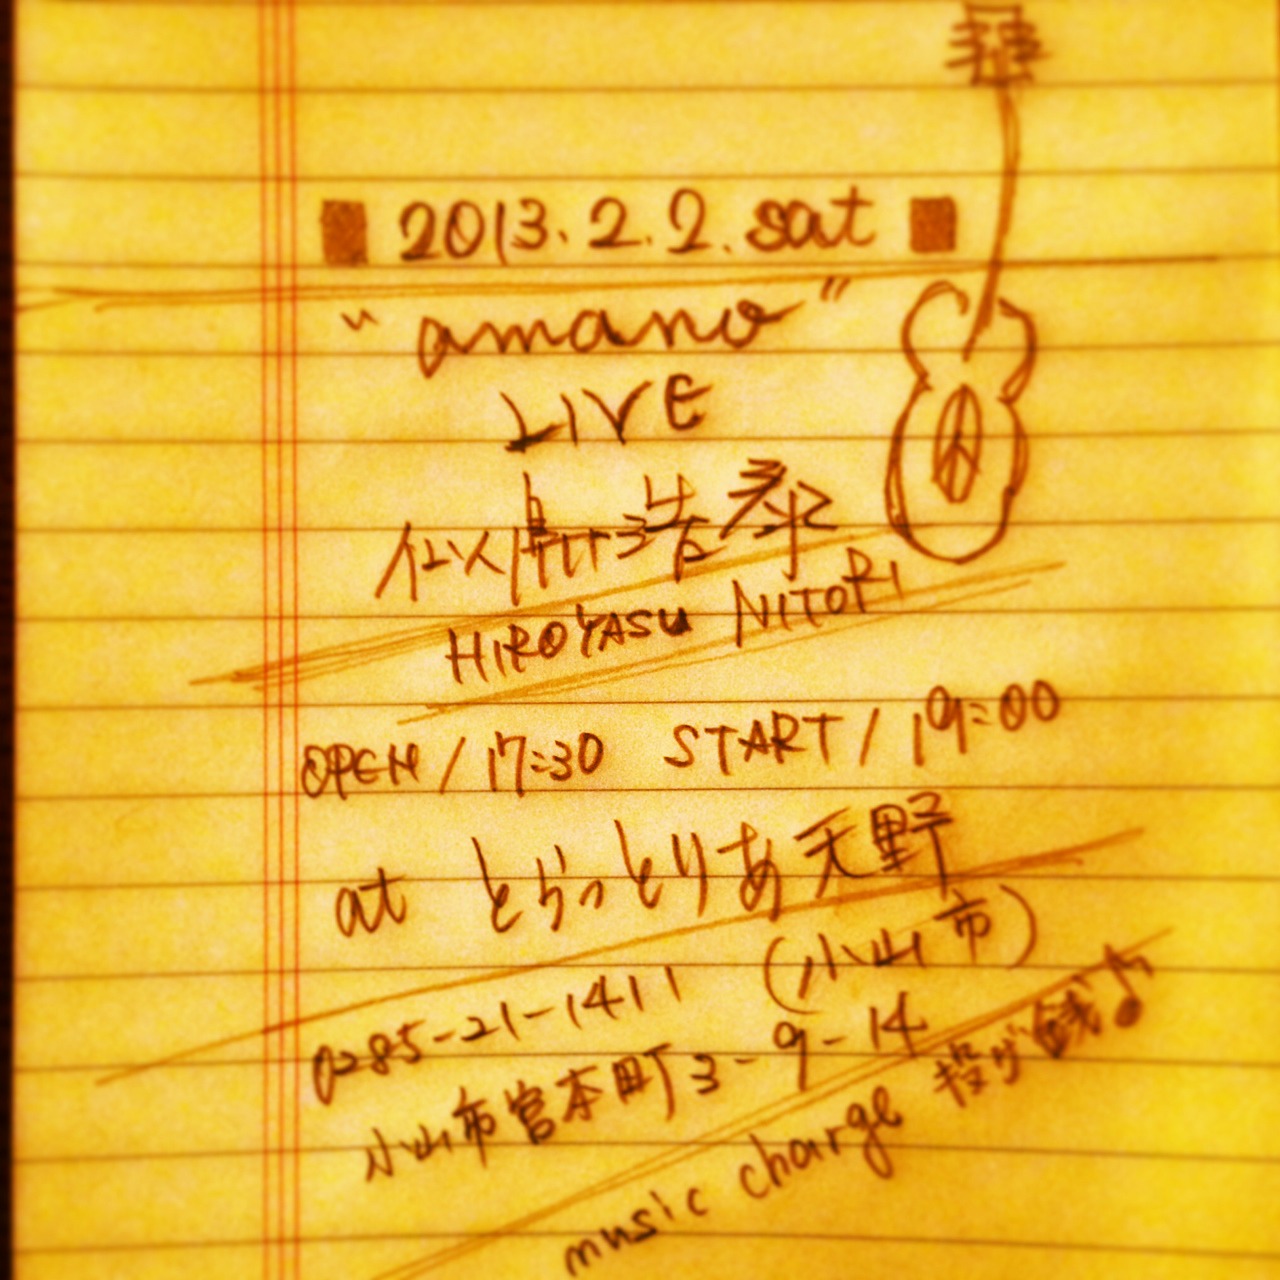 ■ 2013.2.2.sat ■
"amano"
LIVE
似鳥浩泰
HIROYASU NITORI
OPEN / 17:30 START / 19:00
at とらっとりあ天野
(小山市)
0285-21-1411
小山市宮本町3-9-14
music charge 投げ銭♪